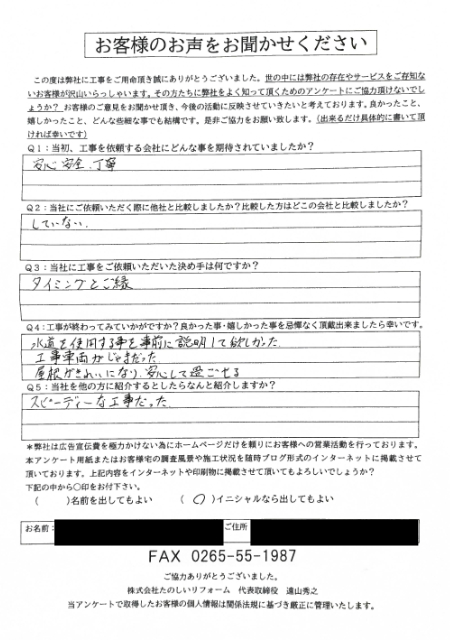 お客様のお声をお聞かせください
この度は弊社に工事をご用命頂き誠にありがとうございました。世の中には弊社の存在やサービスをご存知な
いお客様が沢山いらっしゃいます。その方たちに弊社をよく知って頂くためのアンケートにご協力頂けないでし
ょうか？ お客様のご意見をお聞かせ頂き、今後の活動に反映させていきたいと考えております。良かったこと、
嬉しかったこと、どんな些細な事でも結構です。是非ご協力をお願い致します。(出来るだけ具体的に書いて頂
ければ幸いです)
Q1：当初、工事を依頼する会社にどんな事を期待されていましたか？
安心安全、丁寧
Q2：当社にご依頼いただく際に他社と比較しましたか？比較した方はどこの会社と比較しましたか？
していない。
Q3：当社に工事をご依頼いただいた決め手は何ですか？
タイミングとご縁
Q4：工事が終わってみていかがですか？良かった事・嬉しかった事を忌憚なく頂戴出来ましたら幸いです。
水道を使用する事を事前に説明して欲しかった
工事車両がじゃまだった
屋根がきれいになり、安心して過ごせる
Q5：当社を他の方に紹介するとしたらなんと紹介しますか？
スピーディーな工事だった
*弊社は広告宣伝費を極力かけない為にホームページだけを頼りにお客様への営業活動を行っております。
本アンケート用紙またはお客様宅の調査風景や施工状況を随時ブログ形式のインターネットに掲載させて
頂いております。上記内容をインターネットや印刷物に掲載させて頂いてもよろしいでしょうか？
下記の中から○印をお付下さい。
( )名前を出してもよい ( ○ )イニシャルなら出してもよい
お名前： ご住所
FAX 0265-55-1987
ご協力ありがとうございました。
株式会社たのしいリフォーム 代表取締役 遠山秀之
当アンケートで取得したお客様の個人情報は関係法規に基づき厳正に管理いたします。